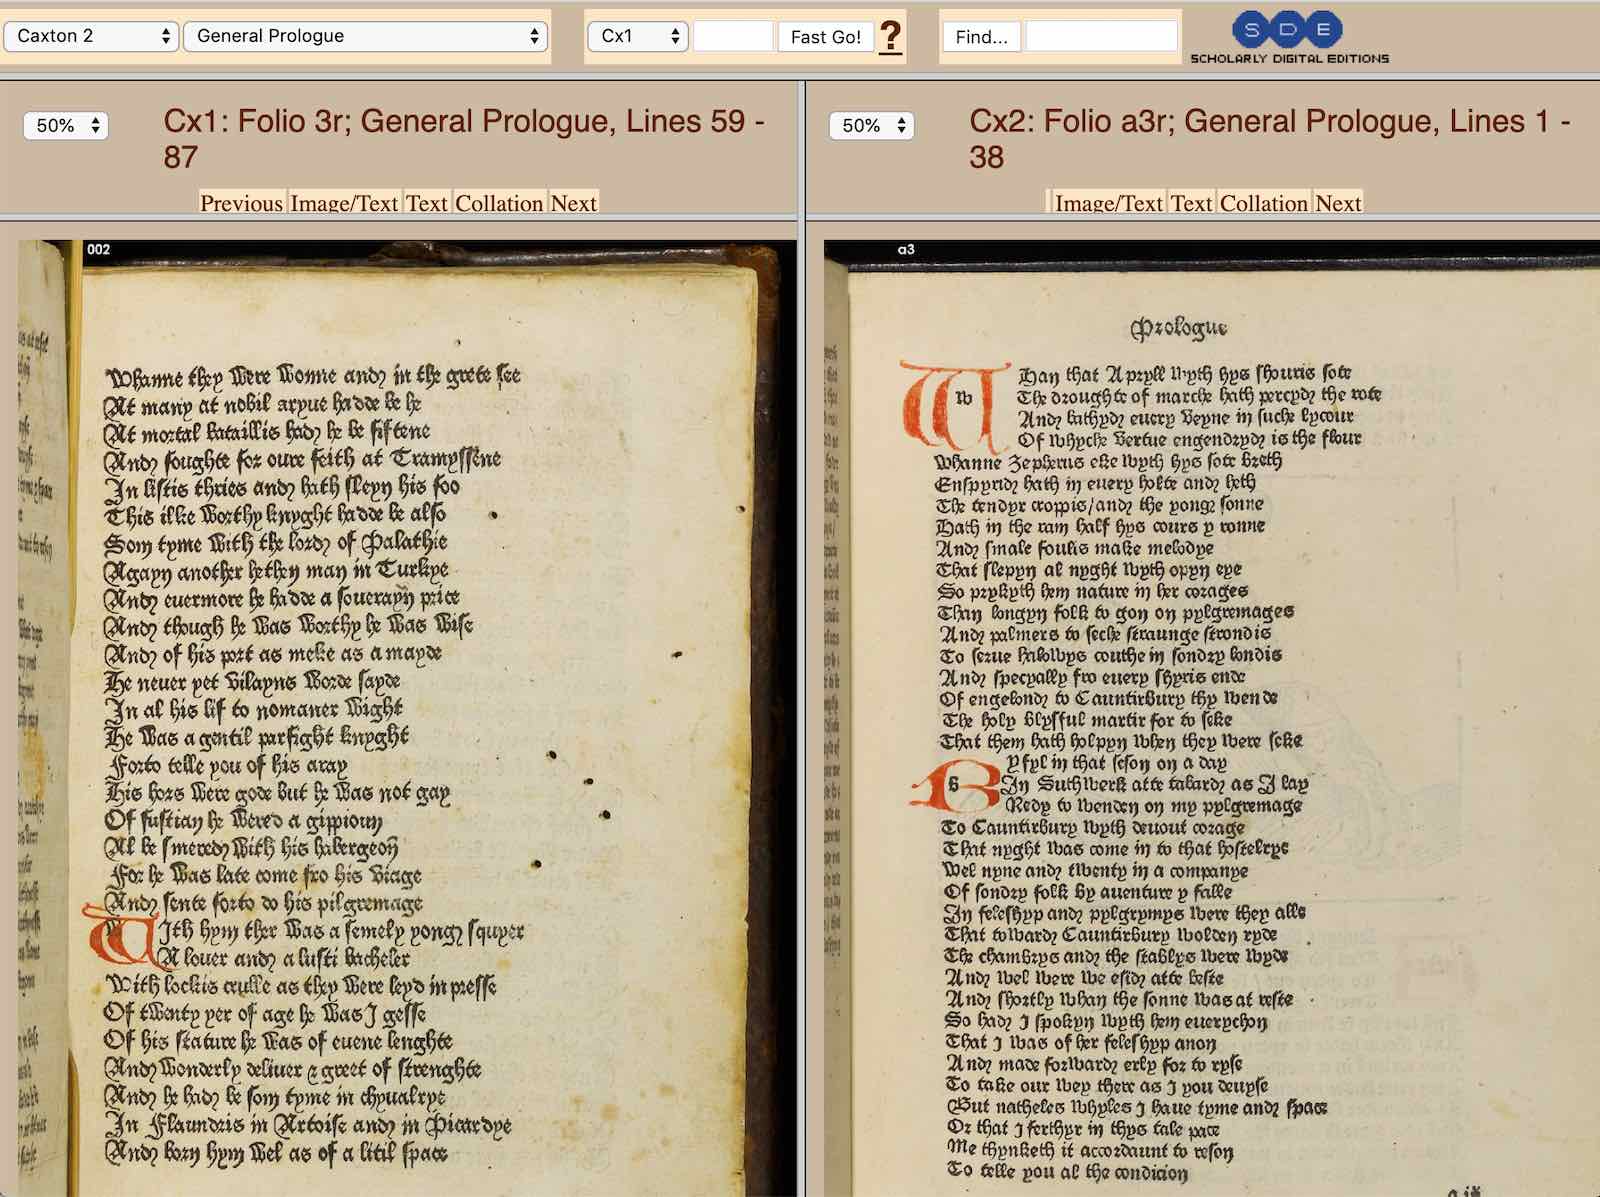 Caxton 2
General Prologue
Cx1
Fast Go!
?
Find...
S D E
SCHOLARLY DIGITAL EDITIONS
50%
Cx1: Folio 3r; General Prologue, Lines 59 -
87
Previous Image/Text Text Collation Next
002
Whanne they were wonne and in the grete see
At many at nobil aryue hadde be he
At mortal bataillis had he be fiftene
And foughte for oure feith at Tramyssene
In listis thries and hath sleyn his foo
This ilke worthy knyght hadde be also
Som tyme with the lord of Palathie
Agayn another hethen man in Turkye
And euermore he hadde a souerayn price
And though he was worthy he was wise
And of his port as meke as a mayde
He neuer yet vilayns worde sayde
In al his lif to nomaner wight
He was a gentil parfight knyght
Forto telle you of his aray
His hors were gode but he was not gay
Of fustian he wered a gippioun
Al be smered with his habergeon̄
For he was late come fro his viage
And sente forto do his pilgremage
WIth hym ther was a semely yong squyer
A louer and a lusti bacheler
With lockis crulle as they were leyd in presse
Of twenty yer of age he was I gesse
Of his stature he was of euene lenghte
And wonderly deliuer & greet of strenghte
And he had be som tyme in chyualrye
In Flaundris in Artoise and in Picardye
And born hym wel as of a litil space
50%
Cx2: Folio a3r; General Prologue, Lines 1 -
38
Image/Text Text Collation Next
a3
Prologue
W w Han that Apryll wyth hys shouris sote
The droughte of marche hath percyd the rote
And bathyd euery veyne in suche lycour
Of whyche vertue engendryd is the flour
Whanne Zepherus eke wyth hys sote breth
Enspyrid hath in euery holte and heth
The tendyr croppis/and the yong sonne
Hath in the ram half hys cours y ronne
And smale foulis make melodye
That slepyn al nyght wyth oppyn eye
So prykyth hem nature in her corages
Than longyn folk to gon on pylgremages
And palmers to seche straunge strondis
To serue halowys couthe in sondry londis
And specyally fro euery shyris ende
Of engelond to Cauntirbury thy wende
The holy blysful martir for to seke
That them hath holpyn when they were seke
B b Yfyl in that seson on a day
In Suthwerk atte tabard as I lay
Redy to wenden on my pylgremage
To Cauntirbury wyth deuout corage
That nyght was come in to that hostelrye
Wel nyne and twenty in a companye
Of sondry folk by auenture y falle
In feleshyp and pylgryms were they alle
That toward Cauntirbury wolden ryde
The chambrys and the stablys were wyde
And wel were we esid atte beste
And shortly whan the sonne was at reste
So had I spokyn wyth hem euerychon
That I was of her feleshyp anon
And made forward erly for to ryse
To take our wey there as I you deuyse
But natheles whyles I haue tyme and space
Or that I ferthyr in thys tale pace
Me thynketh it accordaunt to reson
To telle you al the condicion